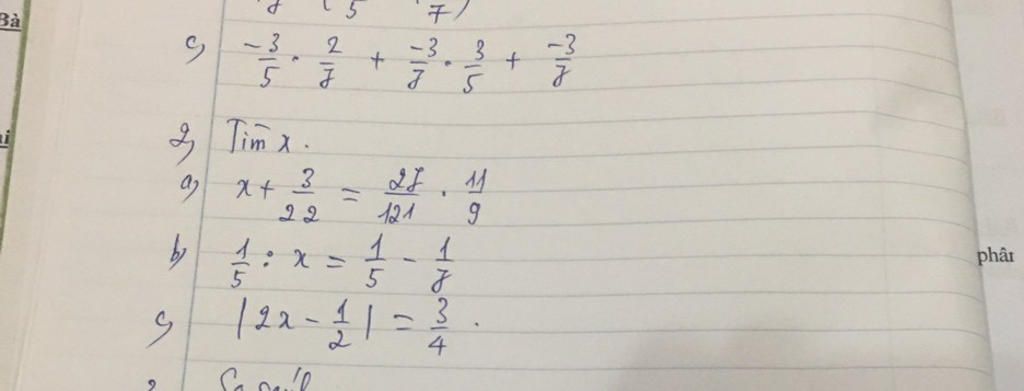 Bà
c) -3/5 . 2/7 + -3/7 . 3/5 + -3/7
2) Tìm x.
a) x + 3/22 = 27/121 . 11/9
b) 1/5 : x = 1/5 - 1/7
c) |2x - 1/2| = 3/4.
phân